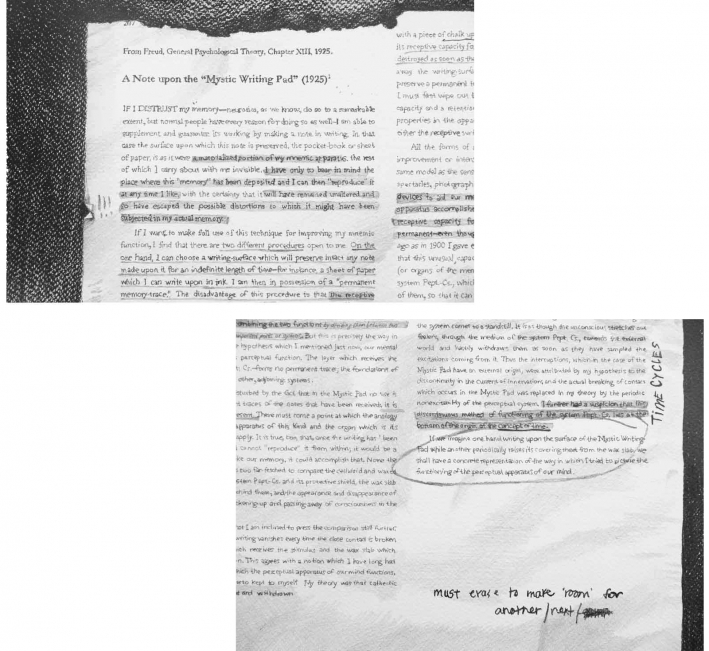 From Freud, General Psychological Theory, Chapter XIII, 1925.
A Note upon the "Mystic Writing Pad" (1925)¹
IF I DISTRUST my memory—neurotics, as we know, do so to a remarkable
extent, but normal people have every reason for doing so as well—I am able to
supplement and guarantee its working by making a note in writing. In that
case the surface upon which this note is preserved, the pocket-book or sheet
of paper, is as it were a materialized portion of my mnemic apparatus, the rest
of which I carry about with me invisible. I have only to bear in mind the
place where this "memory" has been deposited and I can then "reproduce" it
at any time I like, with the certainty that it will have remained unaltered and
so have escaped the possible distortions to which it might have been
subjected in my actual memory.
If I want to make full use of this technique for improving my mnemic
function, I find that there are two different procedures open to me. On the
one hand, I can choose a writing-surface which will preserve intact any note
made upon it for an indefinite length of time—for instance, a sheet of paper
which I can write upon in ink. I am then in possession of a "permanent
memory-trace." The disadvantage of this procedure is that the receptive
with a piece of chalk up
its receptive capacity fo
destroyed as soon as the
away the writing-surf
preserve a permanent t
I must first wipe out t
capacity and a retention
properties in the appa
either the receptive sur
All the forms of
improvement or inten
same model as the sens
spectacles, photograph
devices to aid our me
apparatus accomplishe
receptive capacity fo
permanent—even thoug
ago as in 1900 I gave e
that this unusual capac
(or organs of the men
system Pept.-Cs., whic
of them, so that it can
distributing the two functions
But this is precisely the way in
hypothesis which I mentioned just now, our mental
perceptual function. The layer which receives the
Cs.—forms no permanent trace; the foundations of
other, adjoining systems.
disturbed by the fact that in the Mystic Pad no use is
traces of the notes that have been received; it is
present. There must come a point at which the analogy
apparatus of this kind and the organ which is its
apply. It is true, too, that, once the writing has been
cannot "reproduce" it from within; it would be a
like our memory, it could accomplish that. None the
too far-fetched to compare the celluloid and waxed
system Pept.-Cs. and its protective shield, the wax slab
behind them, and the appearance and disappearance of
flickering-up and passing-away of consciousness in the
that I am inclined to press the comparison still further.
writing vanishes every time the close contact is broken
which receives the stimulus and the wax slab which
This agrees with a notion which I have long had
which the perceptual apparatus of our mind functions,
kept to myself. My theory was that cathectic
and withdrawn
the system comes to a standstill. It is as though the unconscious stretches out
feelers, through the medium of the system Pept.-Cs., towards the external
world and hastily withdraws them as soon as they have sampled the
excitations coming from it. Thus the interruptions, which in the case of the
Mystic Pad have an external origin, were attributed by my hypothesis to the
discontinuity in the current of innervation; and the actual breaking of contact
which occurs in the Mystic Pad was replaced in my theory by the periodic
non-excitability of the perceptual system. I further had a suspicion that this
discontinuous method of functioning of the system Pept.-Cs. lies at the
bottom of the origin of the concept of time.
If we imagine one hand writing upon the surface of the Mystic Writing-
Pad while another periodically raises its covering sheet from the wax slab, we
shall have a concrete representation of the way in which I tried to picture the
functioning of the perceptual apparatus of our mind.
TIME CYCLES
must erase to make 'room' for
another/next/